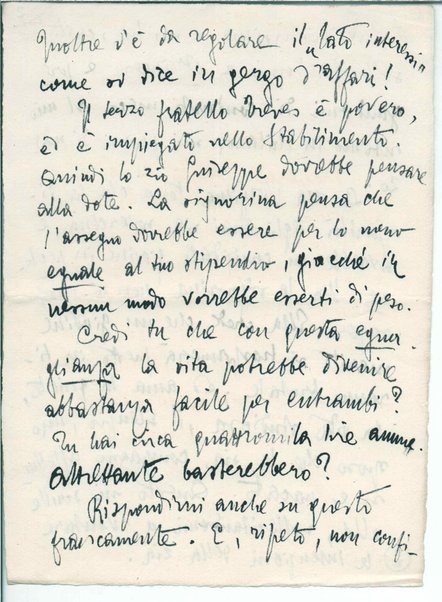 Inoltre v'è da regolare il "lato interessi"
come si dice in gergo d'affari!
Il terzo fratello Treves è povero,
ed è impiegato nello Stabilimento.
Quindi lo zio Giuseppe dovrebbe pensare
alla dote. La signorina pensa che
l'assegno dovrebbe essere per lo meno
eguale al tuo stipendio, giacché in
nessun modo vorrebbe esserti di peso.
Credi tu che con questa egua-
glianza la vita potrebbe divenire
abbastanza facile per entrambi?
Tu hai circa quattromila lire annue.
Altrettante basterebbero?
Rispondimi anche su questo
francamente. E, ripeto, non confi-